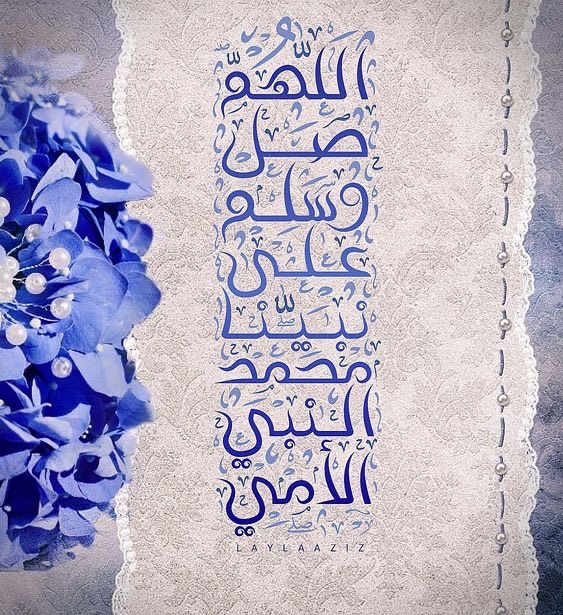 اللهم
صل
وسلم
على
نبينا
محمد
النبي
الأمي
LAYLAAZIZ